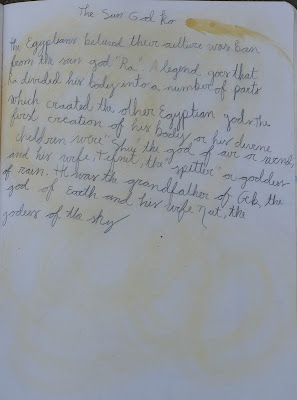 The Sun God Ra
The Egyptians believed their culture was born
from the sun god "Ra". A legend goes that
he divided his body into a number of parts
which craated tha other Egyptian gods. the
first creation of his bodies or his divene
children were "Shu" the god of air or wind,
and his wife, Tefnut, the "spitter" or goddess
of rain. He was the grandfather of Geb, the
god of Earth and his wife Nut, the
godess of tha sky